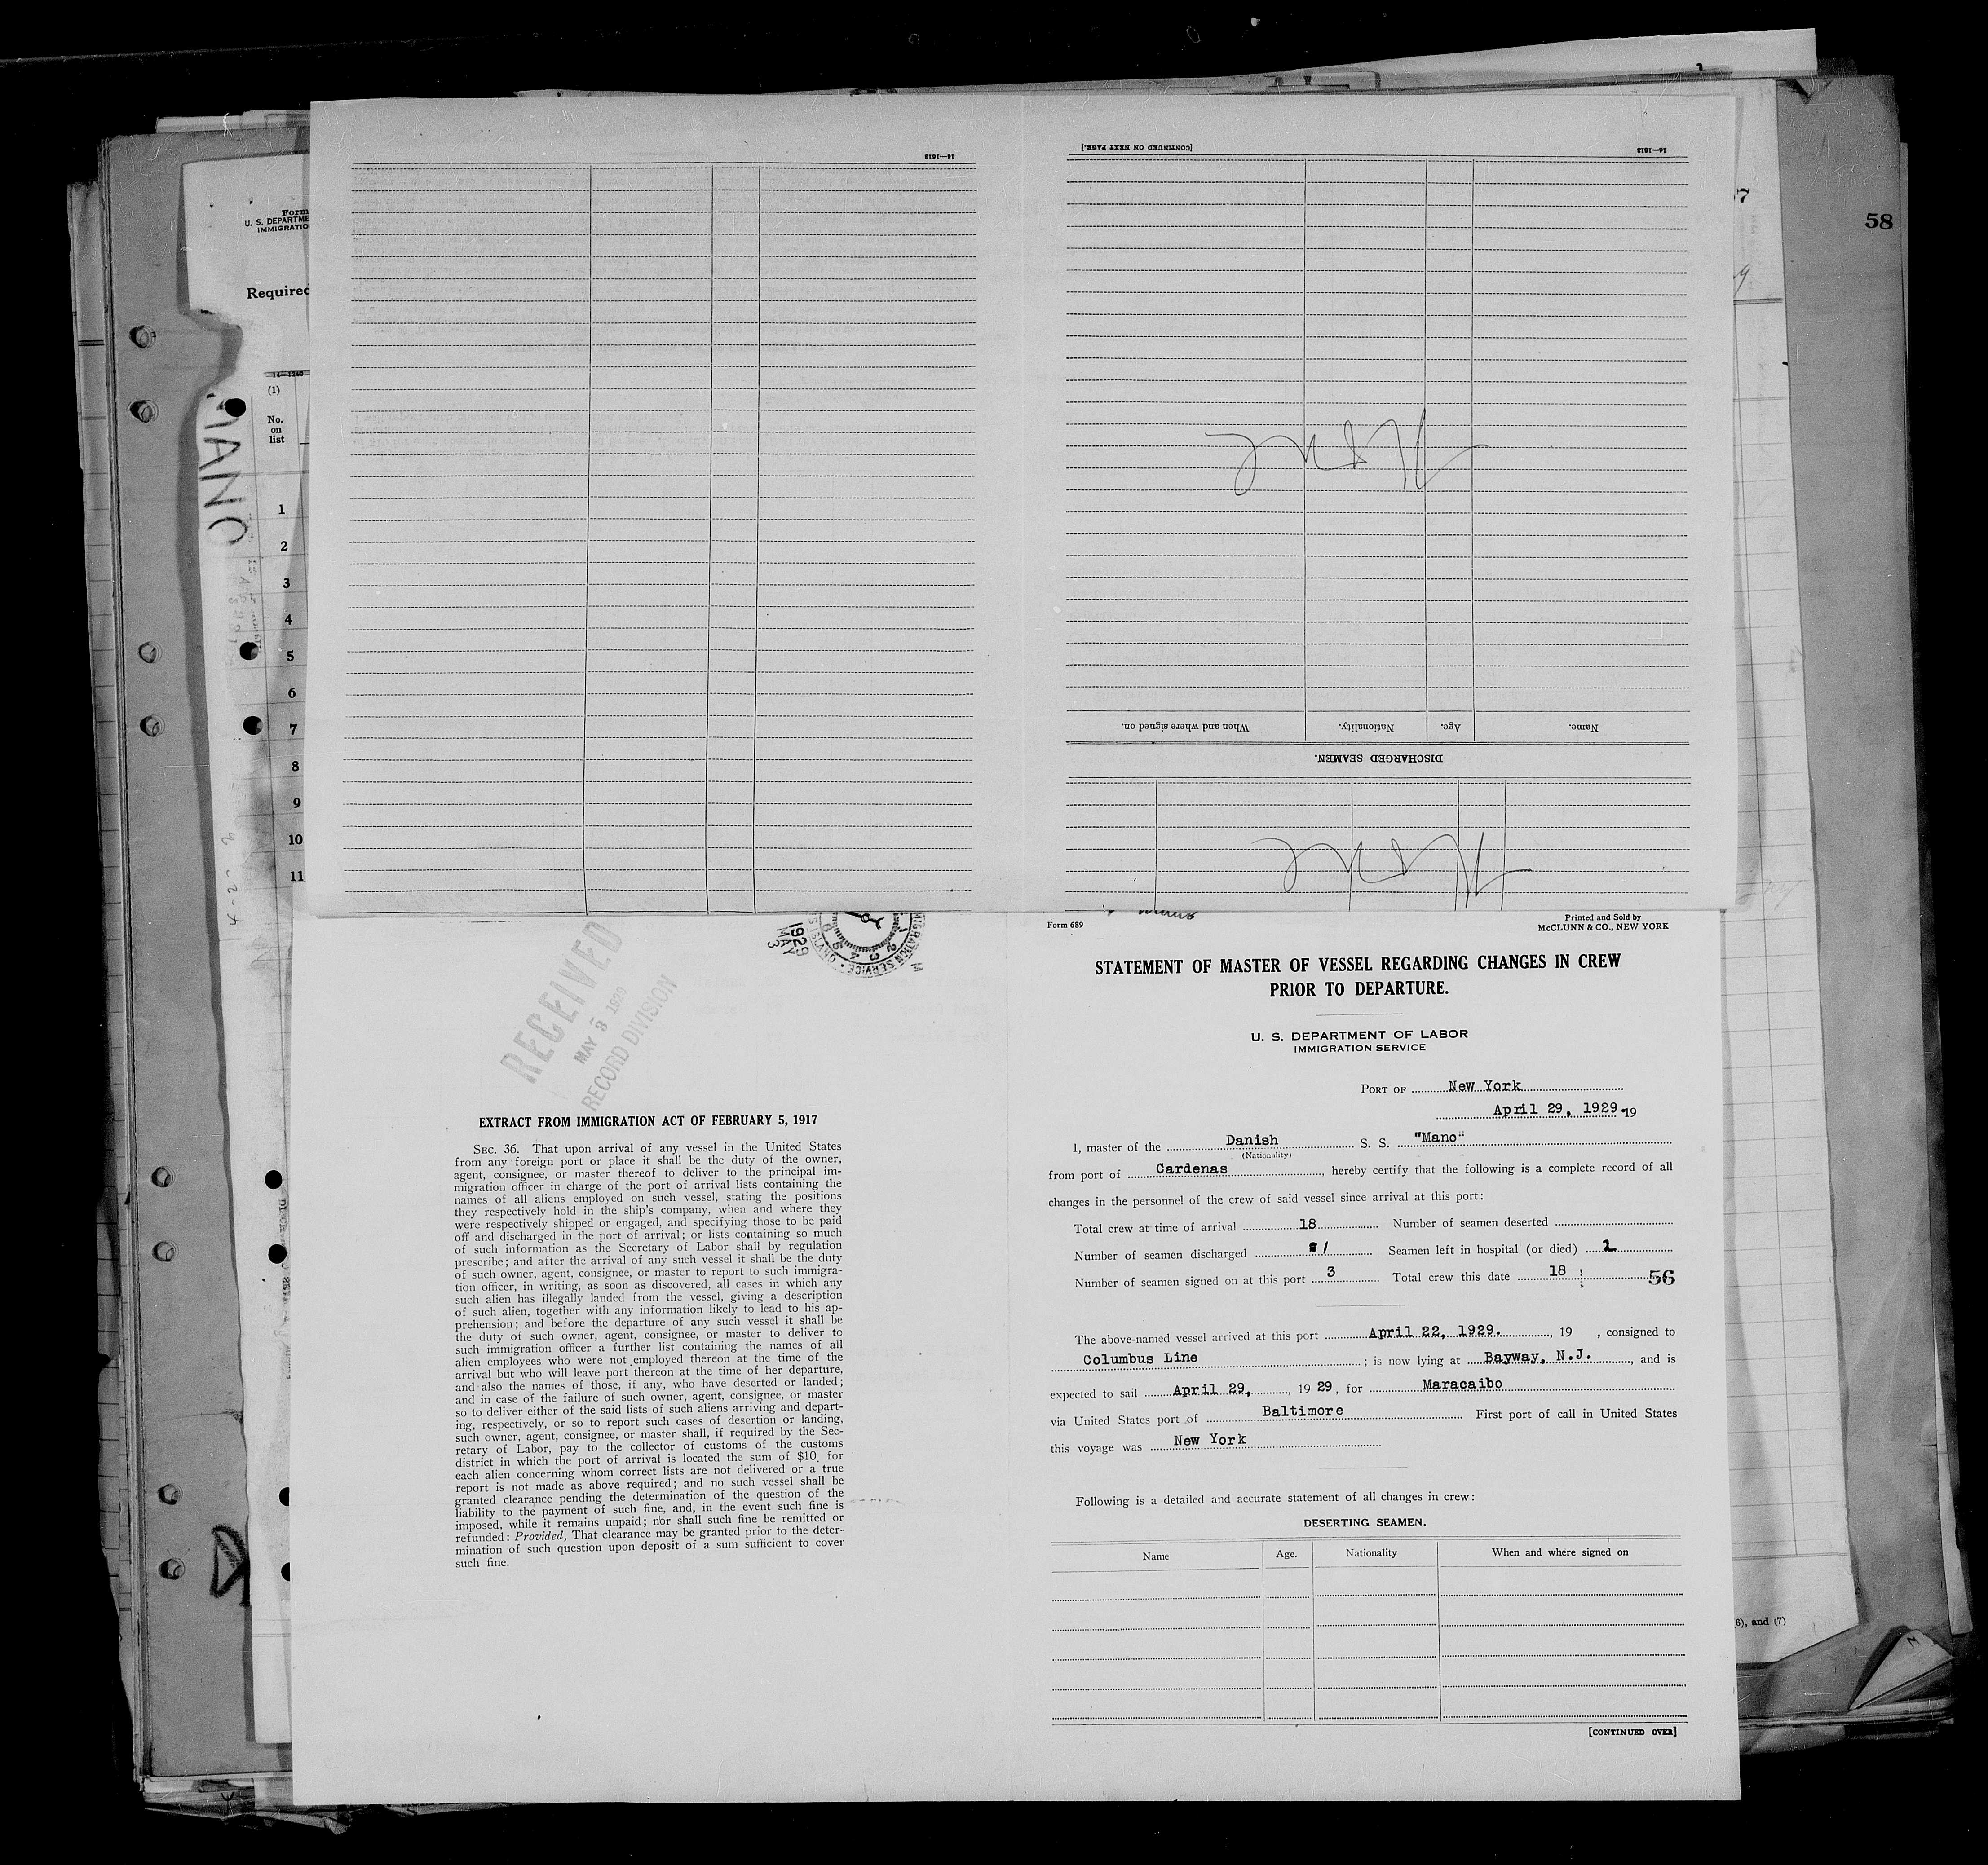 58
57
Form
U. S. DEPARTME
IMMIGRATIO
Required
14—1240
(1)
No.
on
list
MANO
1
2
3
4
5
6
7
8
9
10
11
14—1613
[CONTINUED ON NEXT PAGE.]
14—1613
Name.
Age.
Nationality.
When and where signed on.
DISCHARGED SEAMEN.
1929
MAY
3
RECEIVED
MAY 3 1929
RECORD DIVISION
EXTRACT FROM IMMIGRATION ACT OF FEBRUARY 5, 1917
SEC. 36. That upon arrival of any vessel in the United States
from any foreign port or place it shall be the duty of the owner,
agent, consignee, or master thereof to deliver to the principal im-
migration officer in charge of the port of arrival lists containing the
names of all aliens employed on such vessel, stating the positions
they respectively hold in the ship's company, when and where they
were respectively shipped or engaged, and specifying those to be paid
off and discharged in the port of arrival; or lists containing so much
of such information as the Secretary of Labor shall by regulation
prescribe; and after the arrival of any such vessel it shall be the duty
of such owner, agent, consignee, or master to report to such immigra-
tion officer, in writing, as soon as discovered, all cases in which any
such alien has illegally landed from the vessel, giving a description
of such alien, together with any information likely to lead to his ap-
prehension; and before the departure of any such vessel it shall be
the duty of such owner, agent, consignee, or master to deliver to
such immigration officer a further list containing the names of all
alien employees who were not employed thereon at the time of the
arrival but who will leave port thereon at the time of her departure,
and also the names of those, if any, who have deserted or landed;
and in case of the failure of such owner, agent, consignee, or master
so to deliver either of the said lists of such aliens arriving and depart-
ing, respectively, or so to report such cases of desertion or landing,
such owner, agent, consignee, or master shall, if required by the Sec-
retary of Labor, pay to the collector of customs of the customs
district in which the port of arrival is located the sum of $10 for
each alien concerning whom correct lists are not delivered or a true
report is not made as above required; and no such vessel shall be
granted clearance pending the determination of the question of the
liability to the payment of such fine, and, in the event such fine is
imposed, while it remains unpaid; nor shall such fine be remitted or
refunded: Provided, That clearance may be granted prior to the deter-
mination of such question upon deposit of a sum sufficient to cover
such fine.
Form 689
Printed and Sold by
McCLUNN & CO., NEW YORK
STATEMENT OF MASTER OF VESSEL REGARDING CHANGES IN CREW
PRIOR TO DEPARTURE.
U. S. DEPARTMENT OF LABOR
IMMIGRATION SERVICE
PORT OF New York
April 29, 1929. 19
I, master of the Danish S. S. "Mano"
(Nationality)
from port of Cardenas, hereby certify that the following is a complete record of all
changes in the personnel of the crew of said vessel since arrival at this port:
Total crew at time of arrival 18 Number of seamen deserted
Number of seamen discharged 1 Seamen left in hospital (or died) 1
Number of seamen signed on at this port 3 Total crew this date 18
56
The above-named vessel arrived at this port April 22, 1929., 19 , consigned to
Columbus Line ; is now lying at Bayway, N.J., and is
expected to sail April 29, , 19 29, for Maracaibo
via United States port of Baltimore First port of call in United States
this voyage was New York
Following is a detailed and accurate statement of all changes in crew:
DESERTING SEAMEN.
Name Age. Nationality When and where signed on
[CONTINUED OVER]
6), and (7)